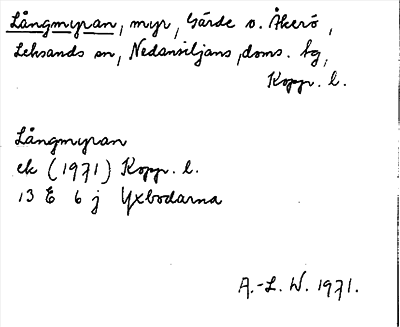 Långmyran, myr, Gärde o. Åkerö,
Leksands sn, Nedansiljans doms. tg,
Kopp. l.
Långmyran
ek (1971) Kopp. l.
13 E 6 j Yxbodarna
A.-L. W. 1971.